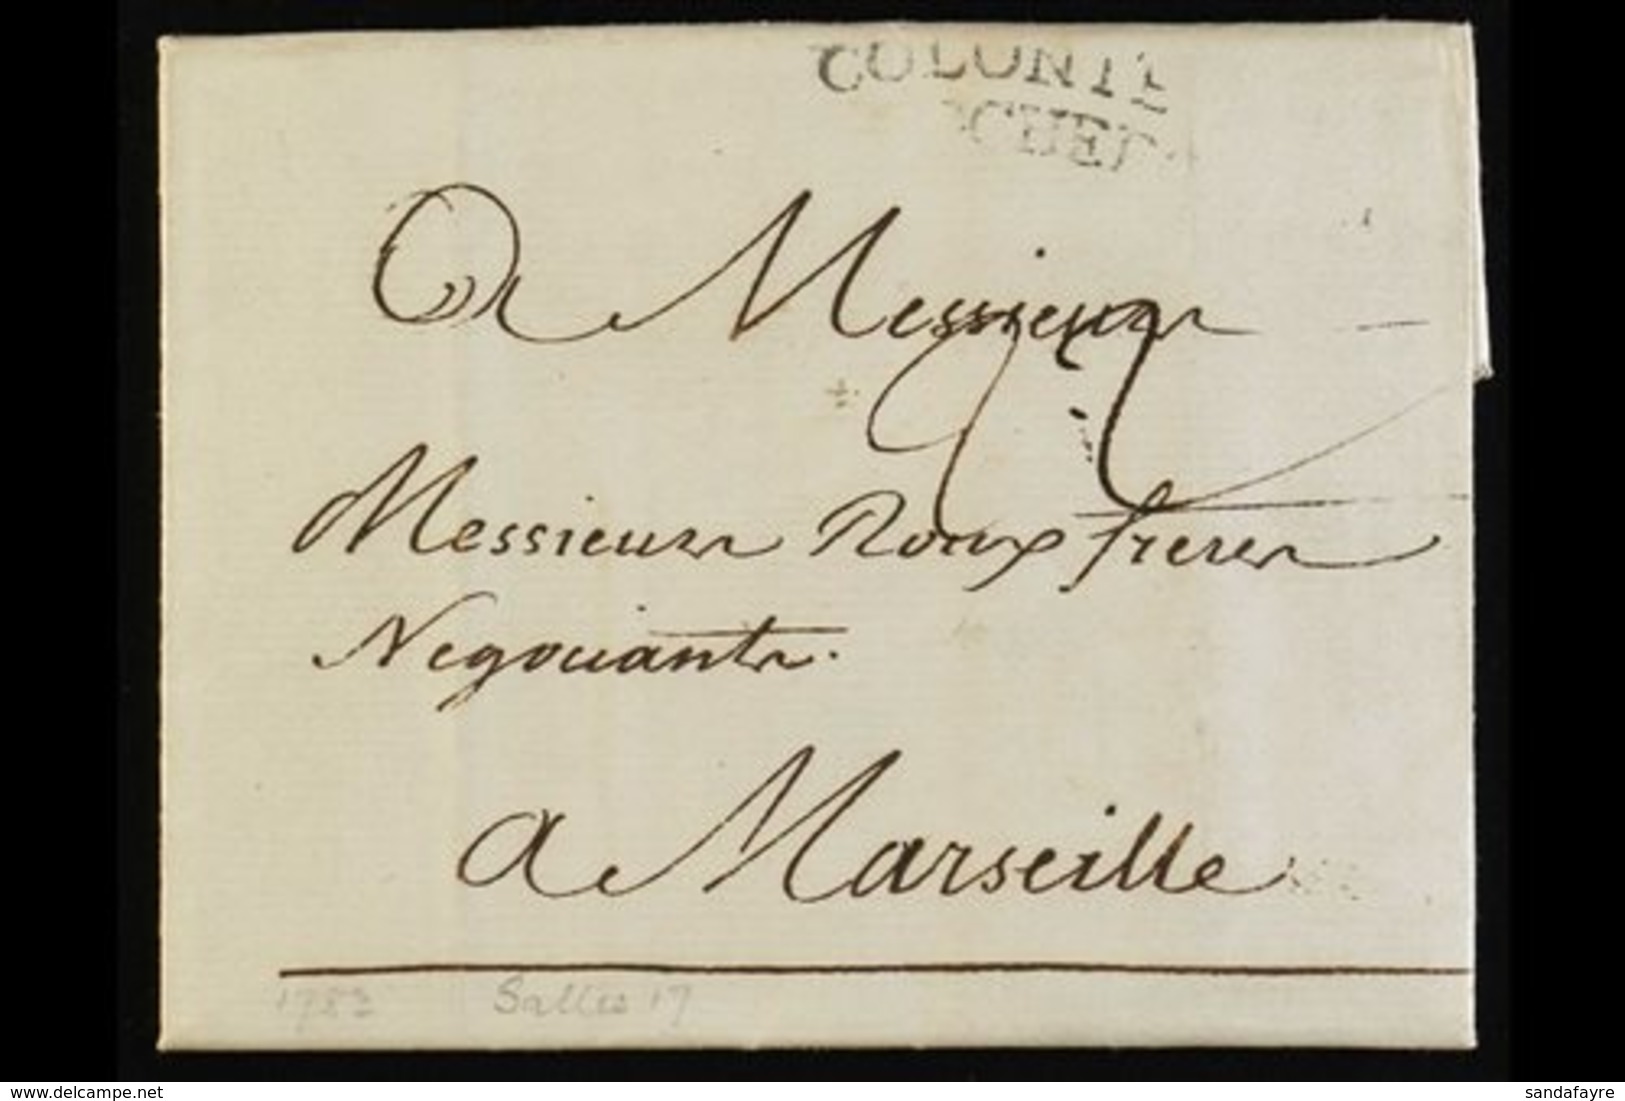 COLONIE
OCHEL
A Messieurs
Messieurs Roux freres
Negociants.
a Marseille
1783 Salles 17
delcampe.net
sandafayre